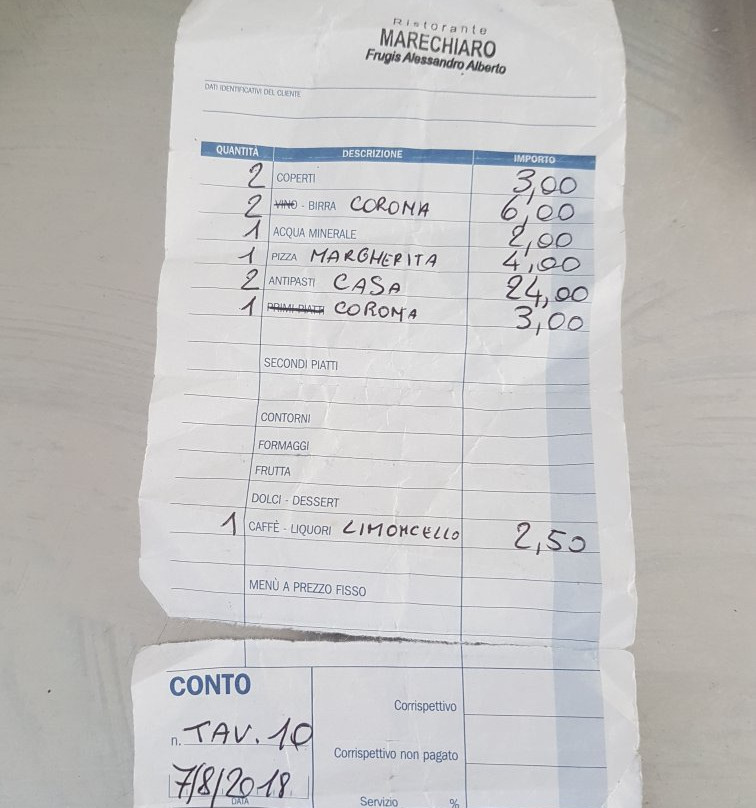 Ristorante
MARECHIARO
Frugis Alessandro Alberto
DATI IDENTIFICATIVI DEL CLIENTE
QUANTITÀ DESCRIZIONE IMPORTO
2 COPERTI 3,00
2 VINO - BIRRA CORONA 6,00
1 ACQUA MINERALE 2,00
1 PIZZA MARGHERITA 4,00
2 ANTIPASTI CASA 24,00
1 PRIMI PIATTI CORONA 3,00
SECONDI PIATTI
CONTORNI
FORMAGGI
FRUTTA
DOLCI - DESSERT
1 CAFFÈ - LIQUORI LIMONCELLO 2,50
MENÙ A PREZZO FISSO
CONTO
Corrispettivo
n. TAV. 10
Corrispettivo non pagato
7/8/2018
DATA
Servizio %